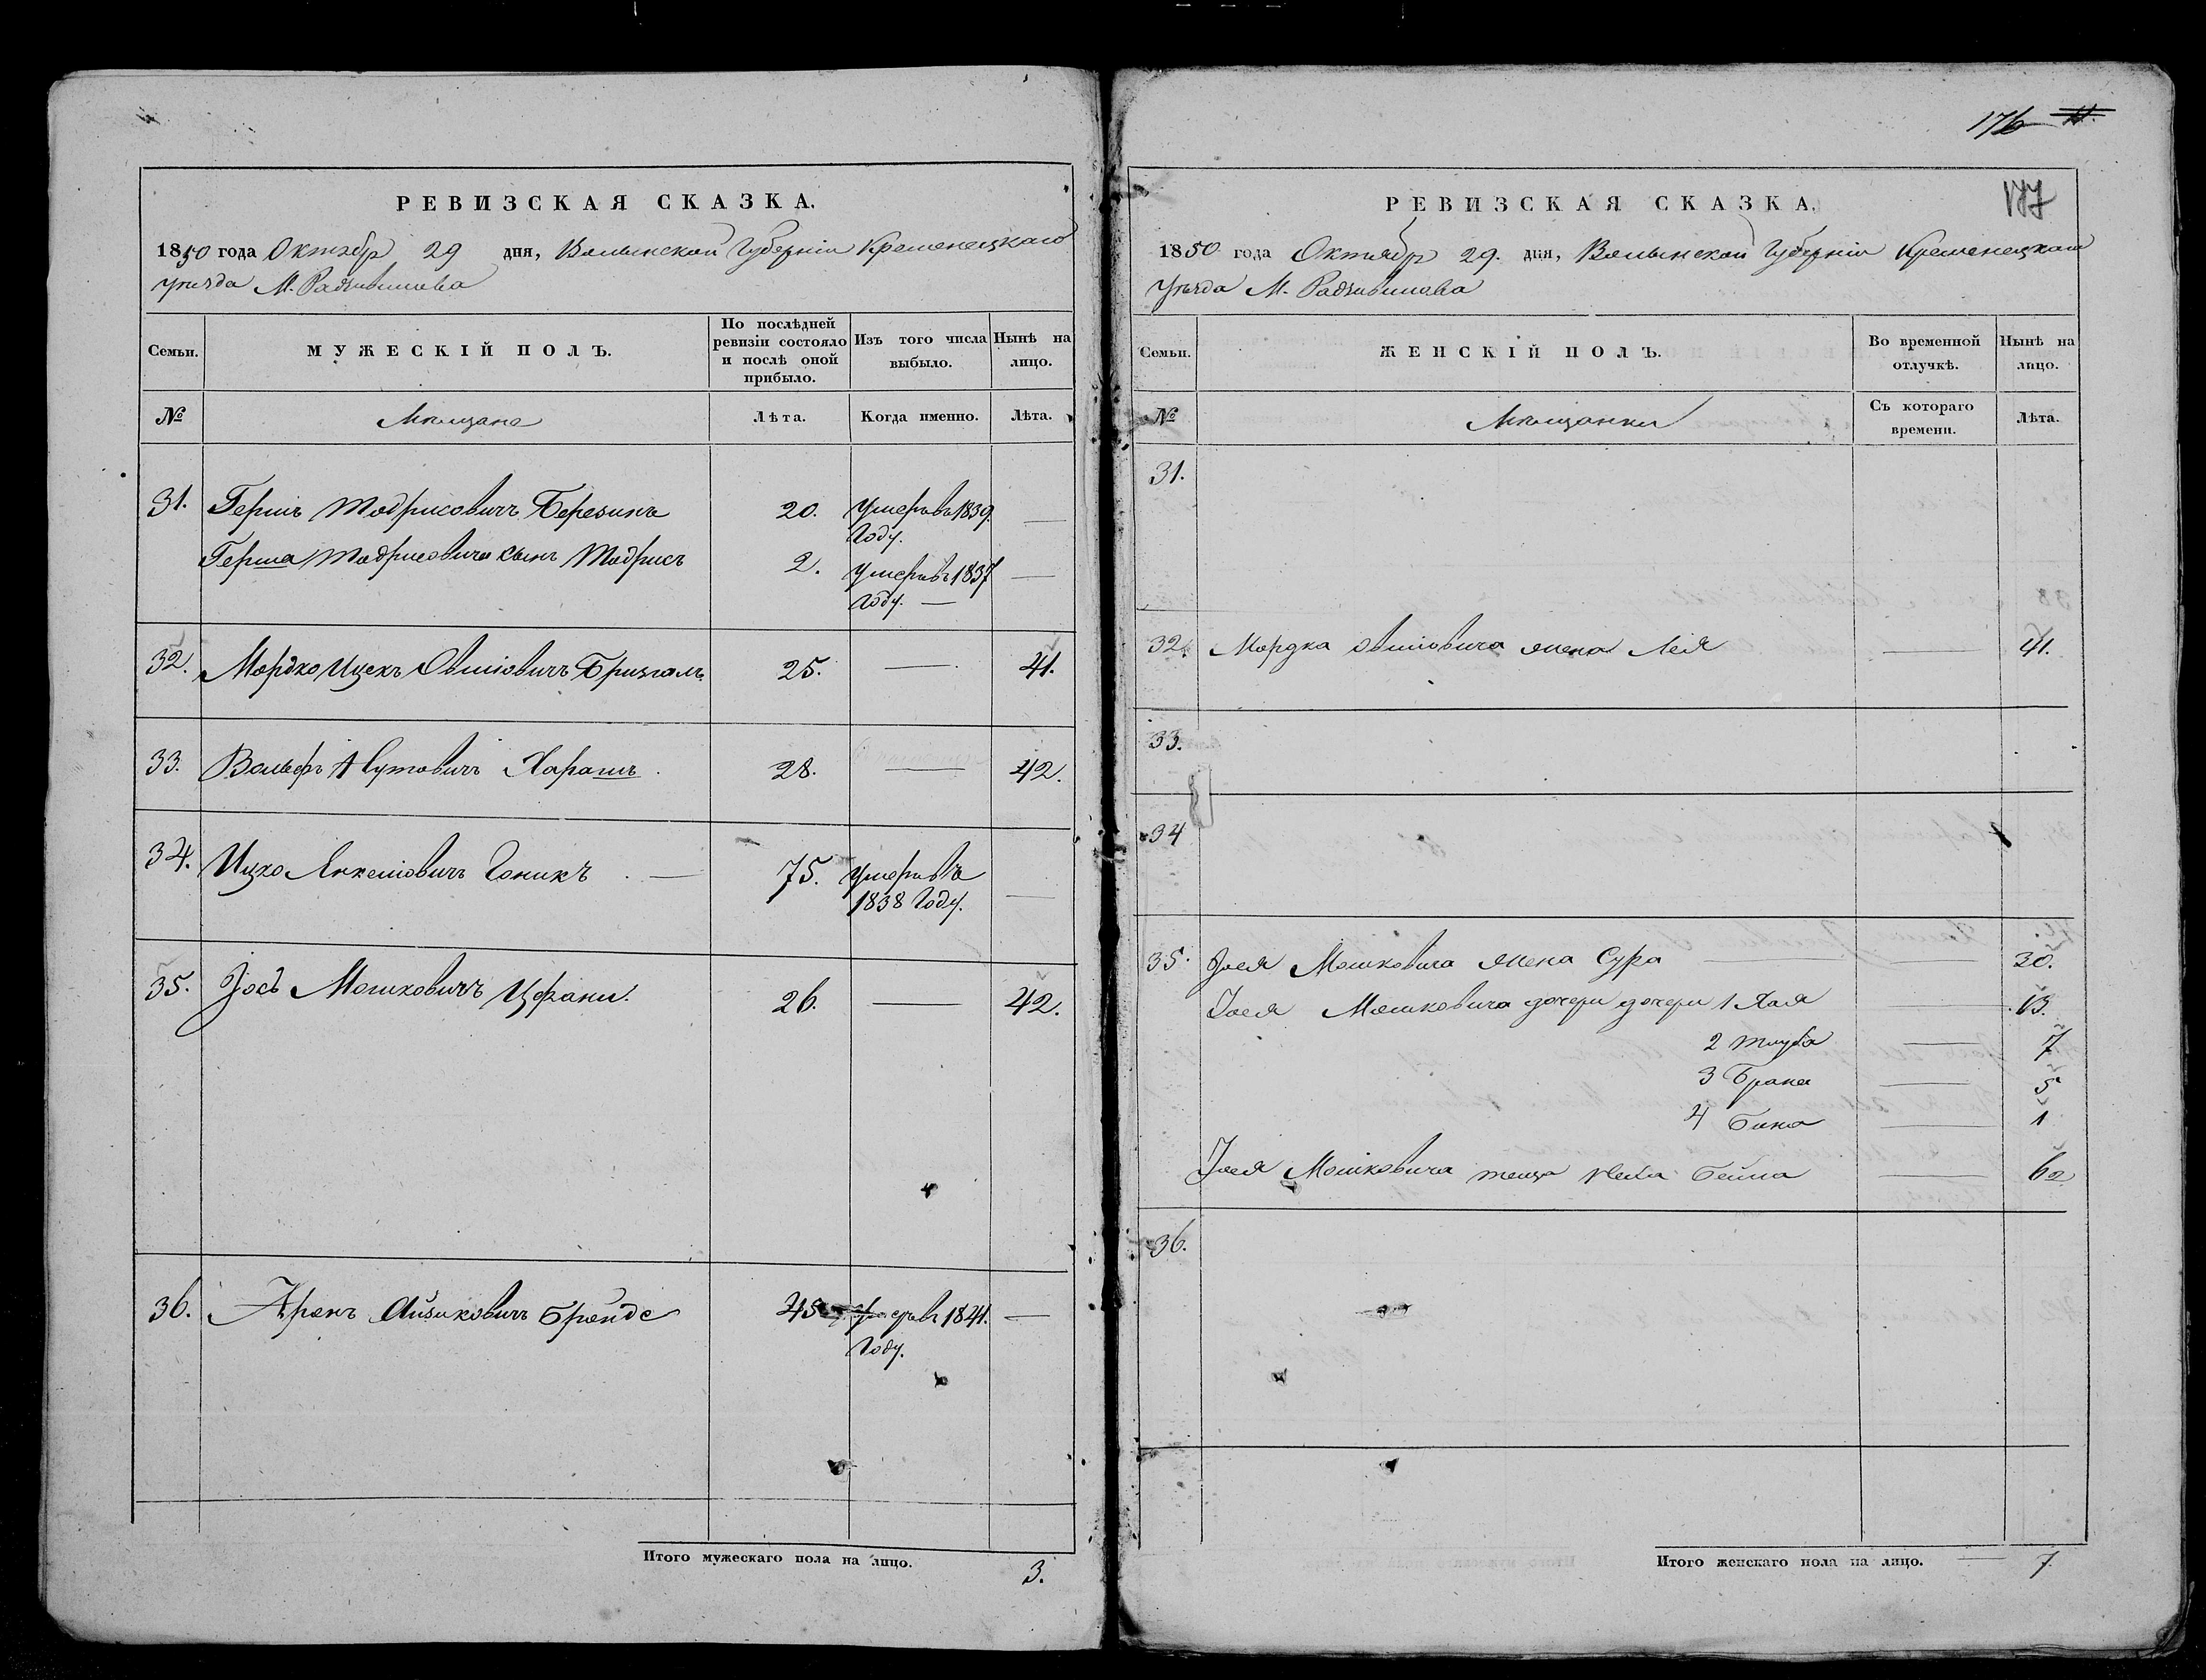 РЕВИЗСКАЯ СКАЗКА.
1850 года Октябр 29 дня, Волынской Губерніи Кременецкаго
уѣзда М. Радзивилова
Семьи. МУЖЕСКІЙ ПОЛЪ. По послѣдней ревизіи состояло и послѣ оной прибыло. Изъ того числа выбыло. Нынѣ на лицо.
№ Мѣщане Лѣта. Когда именно. Лѣта.
31. Гершъ Тодрисовичъ Березинъ 20. Умеръ въ 1839.
Году. —
Герша Тодрисовича сынъ Тодрисъ 2. Умеръ въ 1837
Году. —
32. Мордко Ицекъ Овшіовичъ 25. — 41.
33. Вольфъ Харашъ 28. — 42.
34. Ицко Янкеліовичъ Гоникъ 75. Умеръ въ
1838 Году. —
35. Іось Мошковичъ 26. — 42.
36. Аронъ Айзиковичъ Бронде 45 1841. —
Году.
Итого мужескаго пола на лицо. 3.
176 11.
177
РЕВИЗСКАЯ СКАЗКА.
1850 года Октябр 29. дня, Волынской Губерніи Кременецкаго
уѣзда М. Радзивилова
Семьи. ЖЕНСКІЙ ПОЛЪ. Во временной отлучкѣ. Нынѣ на лицо.
№ Мѣщанки Съ котораго времени. Лѣта.
31.
32. Мордка Овшіовича жена Лея — 41.
33.
34
35. Іося Мошковича жена Сура — 30.
Іося Мошковича дочери дочери 1 Хая — 13.
2 Тауба — 7
3 Брана — 5
4 Бина — 1
Іося Мошковича теща Бейла — 62
36.
Итого женскаго пола на лицо. — 7.